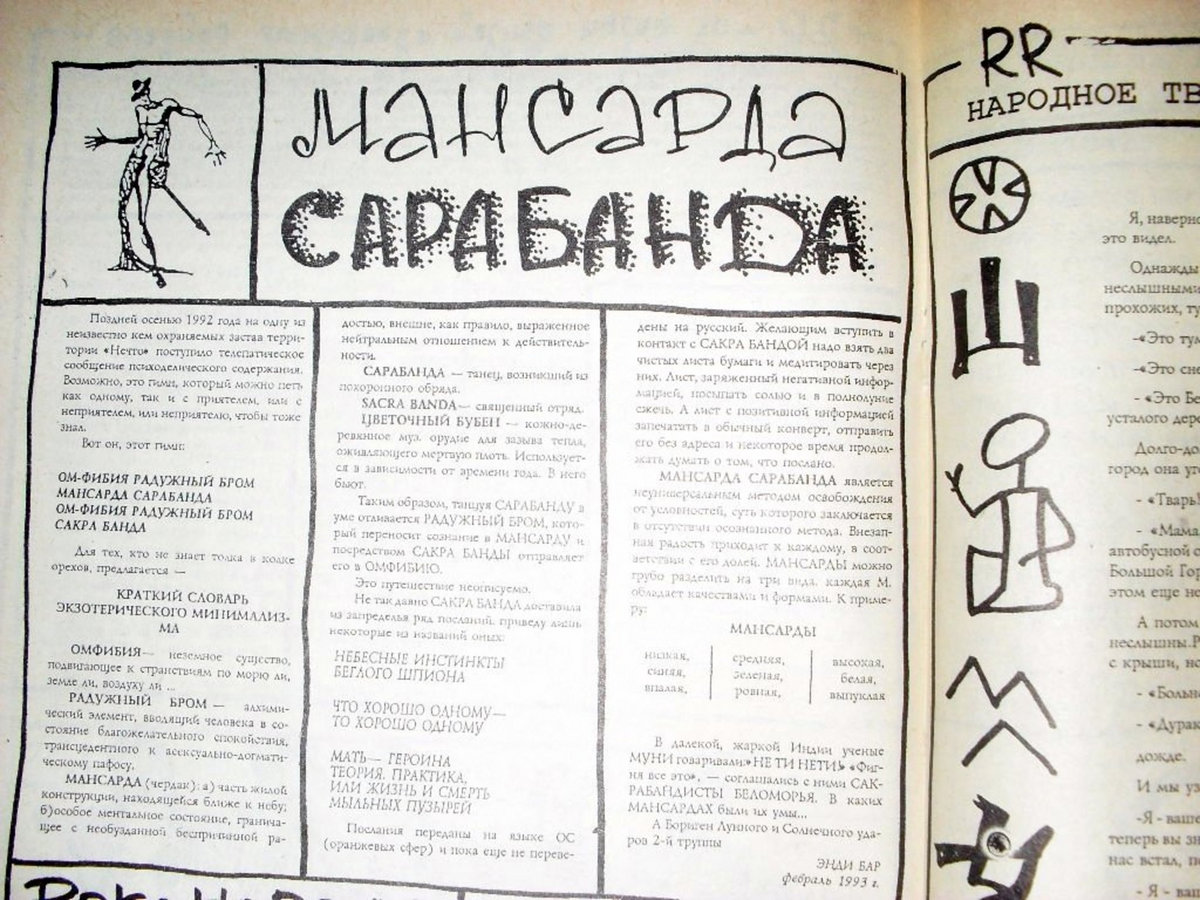 МАНСАРДА
САРАБАНДА
Поздней осенью 1992 года на одну из
неизвестно кем охраняемых застав терри-
тории «Нечто» поступило телепатическое
сообщение психоделического содержания.
Возможно, это гимн, который можно петь
как одному, так и с приятелем, или с
неприятелем, или неприятелю, чтобы тоже
знал.
Вот он, этот гимн:
ОМ-ФИБИЯ РАДУЖНЫЙ БРОМ
МАНСАРДА САРАБАНДА
ОМ-ФИБИЯ РАДУЖНЫЙ БРОМ
САКРА БАНДА
Для тех, кто не знает толка в колке
орехов, предлагается —
КРАТКИЙ СЛОВАРЬ
ЭКЗОТЕРИЧЕСКОГО МИНИМАЛИЗ-
МА
ОМФИБИЯ— неземное существо,
подвигающее к странствиям по морю ли,
земле ли, воздуху ли ...
РАДУЖНЫЙ БРОМ — алхими-
ческий элемент, вводящий человека в со-
стояние благожелательного спокойствия,
трансцедентного к асексуально-догмати-
ческому пафосу.
МАНСАРДА (чердак): а) часть жилой
конструкции, находящейся ближе к небу;
б)особое ментальное состояние, гранича-
щее с необузданной беспричинной ра-
достью, внешне, как правило, выраженное
нейтральным отношением к действитель-
ности.
САРАБАНДА — танец, возникший из
похоронного обряда.
SACRA BANDA— священный отряд.
ЦВЕТОЧНЫЙ БУБЕН — кожно-де-
ревянное муз. орудие для зазыва тепла,
оживляющего мертвую плоть. Использует-
ся в зависимости от времени года. В него
бьют.
Таким образом, танцуя САРАБАНДУ в
уме отливается РАДУЖНЫЙ БРОМ, кото-
рый переносит сознание в МАНСАРДУ и
посредством САКРА БАНДЫ отправляет
его в ОМФИБИЮ.
Это путешествие неописуемо.
Не так давно САКРА БАНДА доставила
из запределья ряд посланий, приведу лишь
некоторые из названий оных:
НЕБЕСНЫЕ ИНСТИНКТЫ
БЕГЛОГО ШПИОНА
ЧТО ХОРОШО ОДНОМУ—
ТО ХОРОШО ОДНОМУ
МАТЬ— ГЕРОИНА
ТЕОРИЯ, ПРАКТИКА,
ИЛИ ЖИЗНЬ И СМЕРТЬ
МЫЛЬНЫХ ПУЗЫРЕЙ
Послания переданы на языке ОС
(оранжевых сфер) и пока еще не переве-
дены на русский. Желающим вступить в
контакт с САКРА БАНДОЙ надо взять два
чистых листа бумаги и медитировать через
них. Лист, заряженный негативной инфор-
мацией, посыпать солью и в полнолуние
сжечь. А лист с позитивной информацией
запечатать в обычный конверт, отправить
его без адреса и некоторое время продол-
жать думать о том, что послано.
МАНСАРДА САРАБАНДА является
неуниверсальным методом освобождения
от условностей, суть которого заключается
в отсутствии осознанного метода. Внезап-
ная радость приходит к каждому, в соот-
ветствии с его долей. МАНСАРДЫ можно
грубо разделить на три вида, каждая М.
обладает качествами и формами. К приме-
ру:
МАНСАРДЫ
низкая, средняя, высокая,
синяя, зеленая, белая,
впалая, ровная, выпуклая
В далекой, жаркой Индии ученые
МУНИ говаривали:»НЕ ТИ НЕТИ!» «Фиг-
ня все это», — соглашались с ними САК-
РАБАНДИСТЫ БЕЛОМОРЬЯ. В каких
МАНСАРДАХ были их умы...
А Бориген Лунного и Солнечного уда-
ров 2-й группы
ЭНДИ БАР
февраль 1993 г.
RR
НАРОДНОЕ ТВ
Я, наверно
это видел.
Однажды
неслышными
прохожих, ту
-«Это тум
-«Это сне
- «Это Бе
усталого дере
Долго-до
город она уто
- «Тварь!
- «Мама
автобусной о
Большой Гор
этом еще не
А потом
неслышны.Р
с крыши, но
- «Больн
- «Дурак
дожде.
И мы уз
-Я - ваше
теперь вы зн
нас встал, по
- Я - ваш